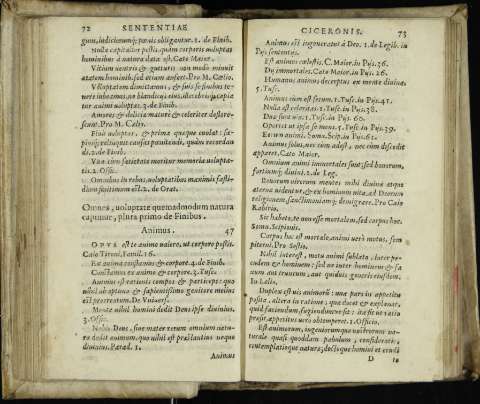 72 SENTENTIAE
gum, iudiciorumq; pœnis obligantur. 2. de Finib.
Nulla capitalior pestis, quàm corporis voluptas
hominibus à natura data est. Cato Maior.
Vitium ventris & gutturis non modò minuit
ætatem hominib. sed etiam aufert. Pro M. Cælio.
Voluptatem dimittamus, & suis se finibus te-
tur animi voluptas. 2. de Finib.
Amores & deliciæ maturè & celeriter deflore-
scunt. Pro M. Cælio.
Fluit voluptas, & prima quæque euolat: sæ-
di. 2. de Finib.
Vna cum satietate moritur memoria volupta-
tis. 2. Offic.
Omnibus in rebus, voluptatibus maximis fasti-
dium finitimum est. 2. de Orat.
Omnes, voluptate quemadmodum natura
capiatur, plura primo de Finibus.
Animus. 47
OPVS est te animo valere, vt corpore possis.
Caio Tironi. Famil. 16.
Ex animo constamus & corpore. 4. de Finib.
Constamus ex animo & corpore. 3. Tusc.
Animus est rationis compos & particeps: quo
nihil ab optimo & sapientissimo genitore melius
est procreatum. De Vniuers.
Mente nihil homini dedit Deus ipse diuinius.
3. Offic.
Nobis Deus, siue mater rerum omnium natu-
ra dedit animum, quo nihil est præstantius neque
diuinius. Parad. 1.
Animus
CICERONIS. 73
Animus est ingeneratus à Deo. 1. de Legib. in
Pijs sententijs.
Est animus cœlestis. C. Maior. in Pijs. 36.
Dij immortales. Cato Maior. in Pijs. 26.
Humanus animus decerptus ex mente diuina.
5. Tusc.
Animus cùm est rerum. 1. Tusc. in Pijs. 41.
Nulla est celeritas. 1. Tusc. in Pijs. 38.
Duæ sunt viæ. 1. Tusc. in Pijs. 60.
Oportet vt ipse se moueat. 1. Tusc. in Pijs. 39.
Eorum animi. Somn. Scip. in Pijs. 61.
Animus solus, nec cùm adest, nec cùm discedit
apparet. Cato Maior.
Omnium animi immortales sunt: sed bonorum,
fortiumq; diuini. 2. de Leg.
Bonorum virorum mentes mihi diuinæ atque
æternæ videntur, & ex hominum vita, ad Deorum
religionem, sanctimoniamq; demigrare. Pro Caio
Rabirio.
Sic habeto, te non esse mortalem, sed corpus hoc.
Somn. Scipionis.
Corpus hoc est mortale, animi verò motus, sem-
piterni. Pro Sestio.
Nihil interest, motu animi sublato, inter pe-
cudem & hominem: sed ne inter hominem & sa-
xum aut truncum, aut quiduis generis eiusdem.
In Lælio.
Duplex est vis animorũ: vna pars in appetitu
posita, altera in ratione; quæ docet & explanat,
quid faciendum, fugiendumve sit: ita fit vt ratio
præsit, appetitus verò obtemperet. 1. Officio.
Est animorum, ingeniorumque nostrorum na-
turale quasi quoddam pabulum, consideratio,
contemplatioque naturæ,
D